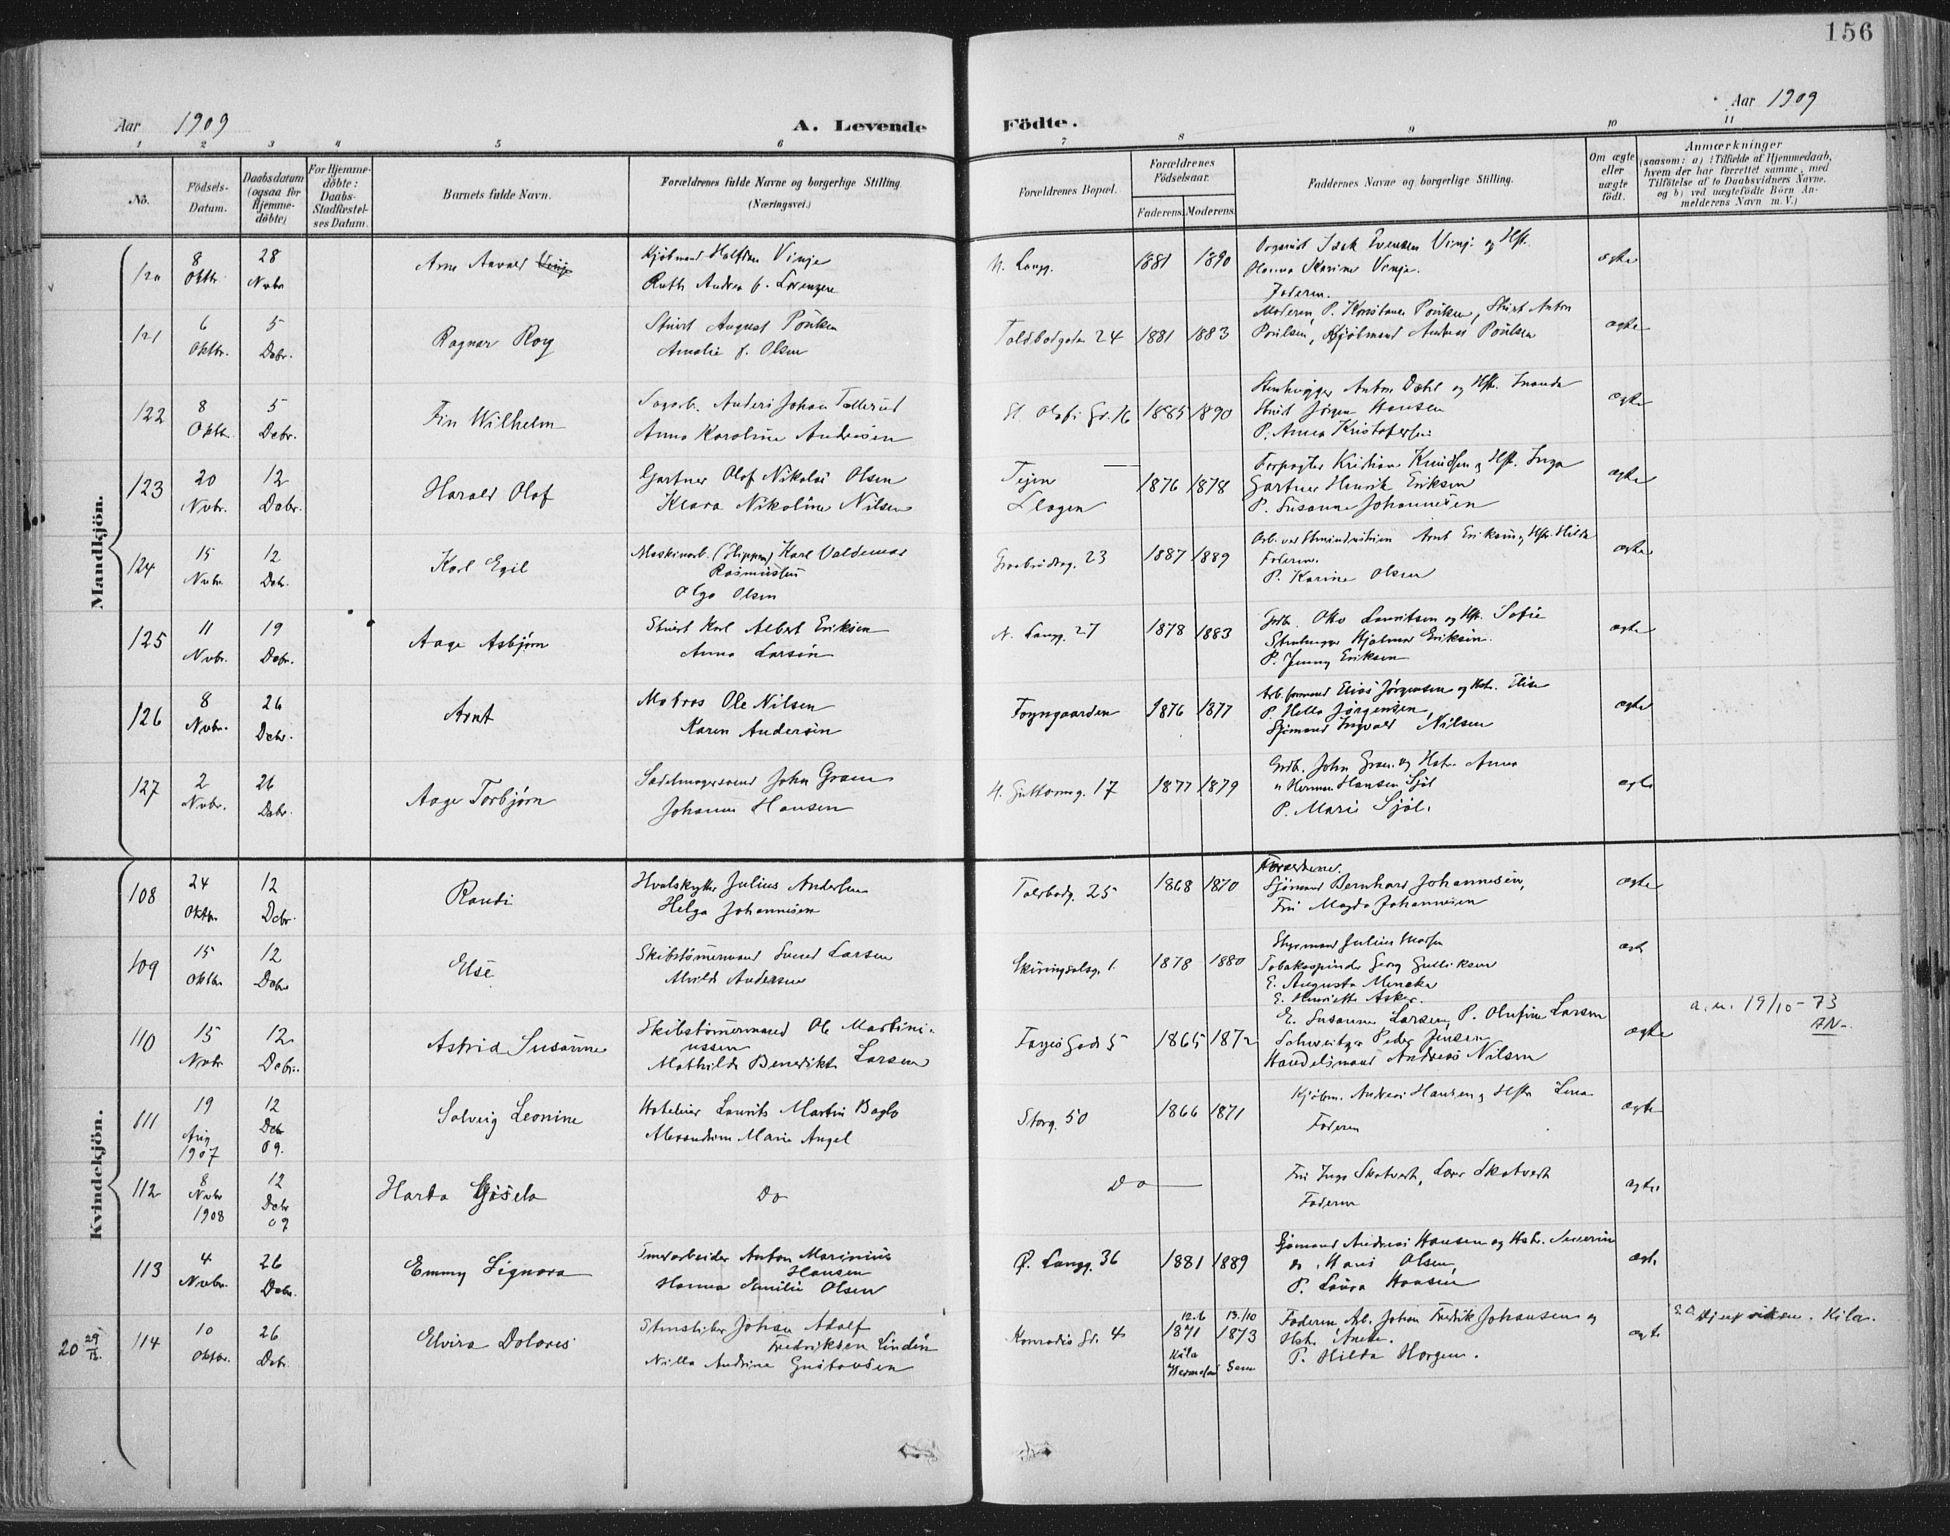 156
Aar 1909
A. Levende
Födte.
Aar 1909
1 2 3 4 5 6 7 8 9 10 11
No.
Födsels-Datum.
Daabsdatum (ogsaa for Hjemme-döbte)
For Hjemme-döbte: Daabs-Stadfæstel-ses Datum.
Barnets fulde Navn.
Forældrenes fulde Navne og borgerlige Stilling.
(Næringsvei.)
Forældrenes Bopæl.
Forældrenes Födselsaar.
Faderens. Moderens.
Faddernes Navne og borgerlige Stilling.
Om ægte eller uægte födt.
Anmærkninger
(saasom: a) i Tilfælde af Hjemmedaab,
hvem der har forrettet samme, med
Tilföielse af to Daabsvidners Navne,
og b) ved uægtefödte Börn An-
melderens Navn m. V.)
Mandkjön.
120 8 Oktbr. 28 Nvbr Arne Aavald Vinje
Kjøbmand Halfdan Vinje
Ruth Andrea f. Lorenzen
N. Langg. 1881 1890
Isak Evensen Vinje og Hst.
Hanna Karine Vinje.
Faderen.
ægte
121 6 Oktbr. 5 Debr. Ragnar Roy
Stuert August Poulsen
Amalie f. Olsen
Toldbodgaden 24 1881 1883
Moderen, P. Kristiane Poulsen, Stuert Anton
Poulsen, Kjøbmand Andreas Poulsen
ægte
122 8 Oktbr. 5 Debr. Fin Wilhelm
Anders Johan Tollerud
Anna Karoline Andresen
St. Olafs Gd. 16 1885 1890
Stenhugger Anton Dahl og Hst.
Stuert Jørgen Hansen
P. Anna Kristofersen
ægte
123 20 Nvbr. 12 Debr. Harald Olaf
Gartner Olof Nikolai Olsen
Klara Nikoline Nilsen
Teien
Slagen
1876 1878
Forpagter Kristian Knudsen og Hst. Inga
Gartner Henrik Eriksen
P. Susanne Johannesen
ægte
124 15 Nvbr. 12 Debr. Karl Egil
Maskinarb. Karl Valdemar
Rasmussen
Olga Olsen
Graabrødreg. 23 1887 1889
Arnt Eriksen og Hst. Hilda
Faderen.
P. Karine Olsen
ægte
125 11 Nvbr. 19 Debr. Aage Asbjørn
Stuert Karl Albert Eriksen
Anna Larsen
N. Langg. 27 1878 1883
Lauritsen og Hst. Sofie
Stenhugger Hjalmar Eriksen.
P. Jenny Eriksen
ægte
126 8 Nvbr. 26 Debr. Arnt
Matros Ole Nilsen
Karen Andersen
Foyngaarden 1876 1877
Arb.formand Elias Jørgensen og Hst. Elise
P. Helle Jørgensen
Sjømand Ingvald Nilsen
ægte
127 2 Nvbr. 26 Debr. Aage Torbjørn
Sadelmagersvend John Gran
Johanne Hansen
H. Guttormsg. 17 1877 1879
Grdb. John Gran og Hst. Anna
" Herman Hansen Sjøl
P. Marie Sjøl.
ægte
Kvindekjön.
108 24 Oktbr. 12 Debr. Randi
Hvalskytter Julius Andersen
Helga Johannesen
Toldbodg. 25 1868 1870
Forældrene.
Sjømand Bernhard Johannesen,
Fru Magda Johannesen
ægte
109 15 Oktbr 12 Debr Else
Skibstømmermand Svend Larsen
Alvilde Andersen
Skiringsalsg. 1. 1878 1880
Styrmand Julius
Tobakspinder Georg Gulliksen
E. Augusta
E. Henriette Asker.
ægt
110 15 Nvbr 12 Debr. Astrid Susanne
Skibstømmermand Ole Martini-
ussen
Mathilde Benedikte Larsen
Farjes Gade 5 1865 1872
E. Susanne Larsen, P. Olufine Larsen
Schweitzer Peder Jensen
Handelsmand Andreas Nilsen
ægte
a.u. 19/10-73
AN.
111 19 Aug 1907 12 Deb 09. Solveig Leonine
Hoteleier Laurits Martin Baglo
Alexandrine Marie Angel
Storg. 50 1866 1871
Kjøbm. Andreas Hansen og Hst. Lina
Faderen
ægte
112 8 Nvbr 1908 12 Debr 09 Harda Gisela
Do
Do
Fru Inga Skotvedt, Lars Skotvedt
Faderen
ægte
113 4 Nvbr. 26 Debr. Emmy Signora
Smedarbeider Anton Marinius
Hansen
Hanna Emilie Olsen
Ø. Langg. 36 1881 1889
Sjømand Andreas Hansen og Hst. Severine
Olsen,
P. Laura Hansen
ægte
20 29/12 114 10 Oktbr. 26 Debr. Elvira Dolores
Stensliber Johan Adolf
Fredriksen Lindén
Nilla Andrine Gustavsen
Konradis Gd. 4
12.6 1871 Kila Vermeland
13/10 1873 Sem
Faderen Arb. Johan Fredrik Johansen og
Hst. Anette.
P. Hilda Horgen.
ægte
Kila.